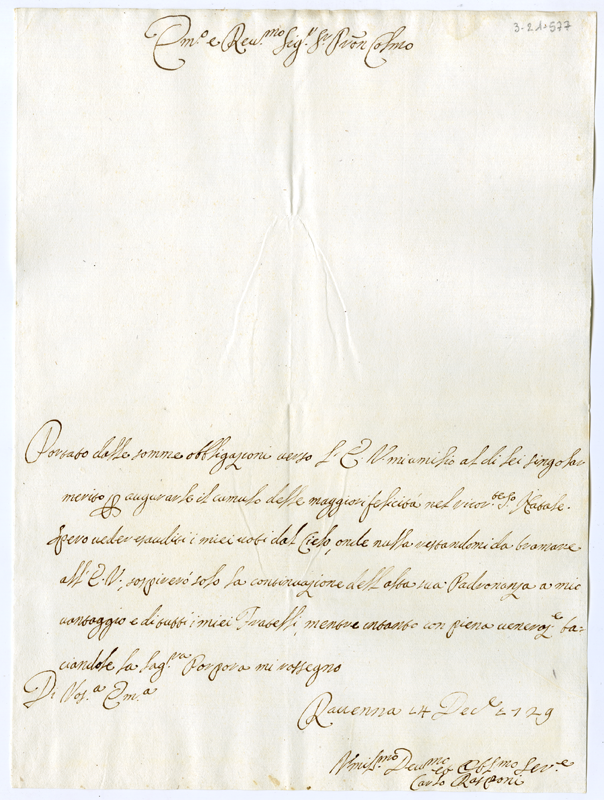 3-21-577
Em.º e Reu.mo Sig.r Sr. Pron Colmo
Portato dalle somme obbligazioni verso l'E. V. m'umilio al di lei singolar
merito p augurarle il cumulo delle maggiori felicità nel ricor.te S.o Natale.
Spero veder esauditi i miei voti dal Cielo, onde nulla restandomi da bramare
all'E. V., sospirerò solo la continuazione dell'alta sua Padronanza a mio
vantaggio e di tutti i miei Fratelli, mentre intanto con piena veneraz.e ba-
ciandole la Sag.ra Porpora mi rassegno
Di Vos.a Em.a
Rauenna 14 Dec.e 1729
Vmilis.mo Deu.mo et Obl.mo Ser.e
Carlo Rasponi